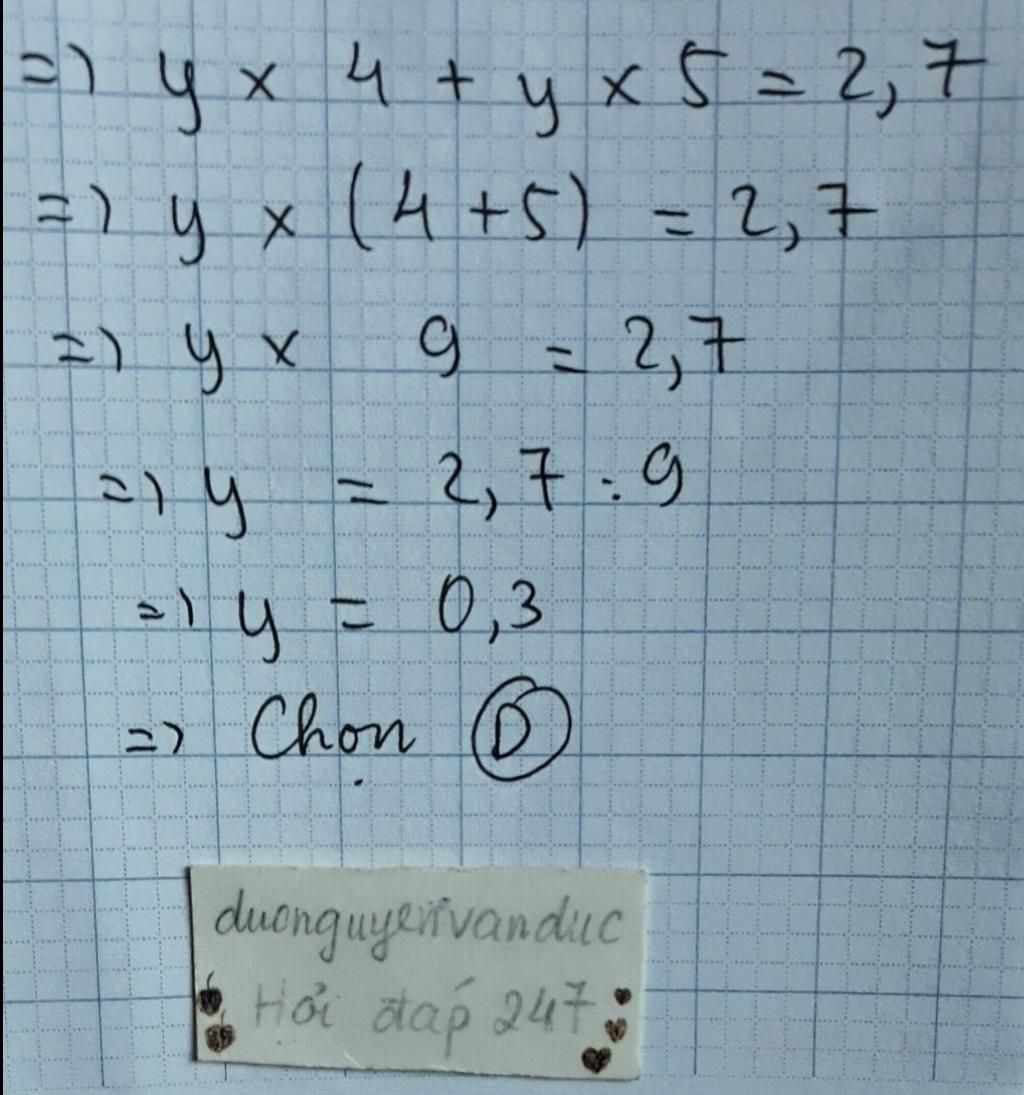 => y × 4 + y × 5 = 2,7
=> y × (4 + 5) = 2,7
=> y × 9 = 2,7
=> y = 2,7 : 9
=> y = 0,3
=> Chọn D
duonguyenvanduc
Hỏi đáp 247